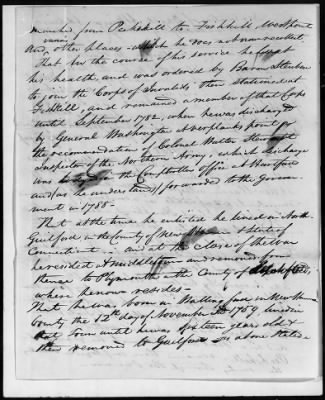 marched from Peekskill to Fishkill Westpoint
And, various other places which he does not now recollect
That in the course of his service he lost
his health, and was ordered by Baron Steuben
to join the Corps of Invalids, then stationed at
Fishkill, and remained a member of that Corps
until September 1782, when he was discharged
by General Washington at verplanks point for
the recommendation of Colonel Walter Stewart
Inspector of the Northern Army, which discharge
was in the Comptrollers office at Hartford
and (as he understands) forwarded to the Govern-
ment in 1788 -
That at the time he enlisted he lived in North-
Guilford in the County of New Haven & State of
Connecticut - and at the close of the War
he resided at Middletown and removed from
thence to Plymouth in the County of
where he now resides -
That he was born in Wallingford in New Haven
County the 12th day of November AD 1759 lived in
that Town until he was sixteen years old &
then removed to Guilford as above stated -